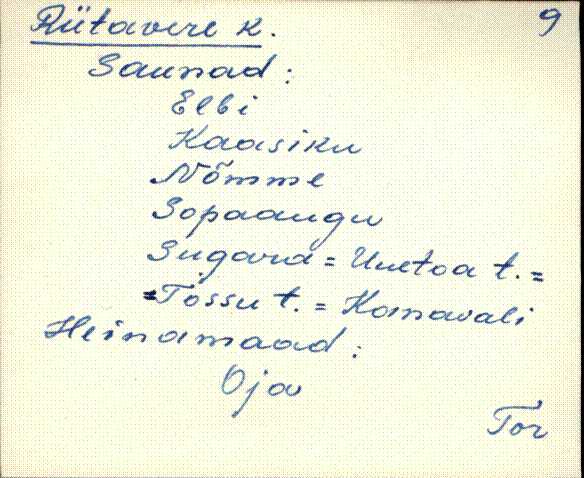 Riitavere k. 9
Saunad:
Elbi
Kaasiku
Nõmme
Sopaaugu
Sugara = Uuetoa t. =
= Tõssu t. = Konnavali
Heinamaad:
Oja
Tor